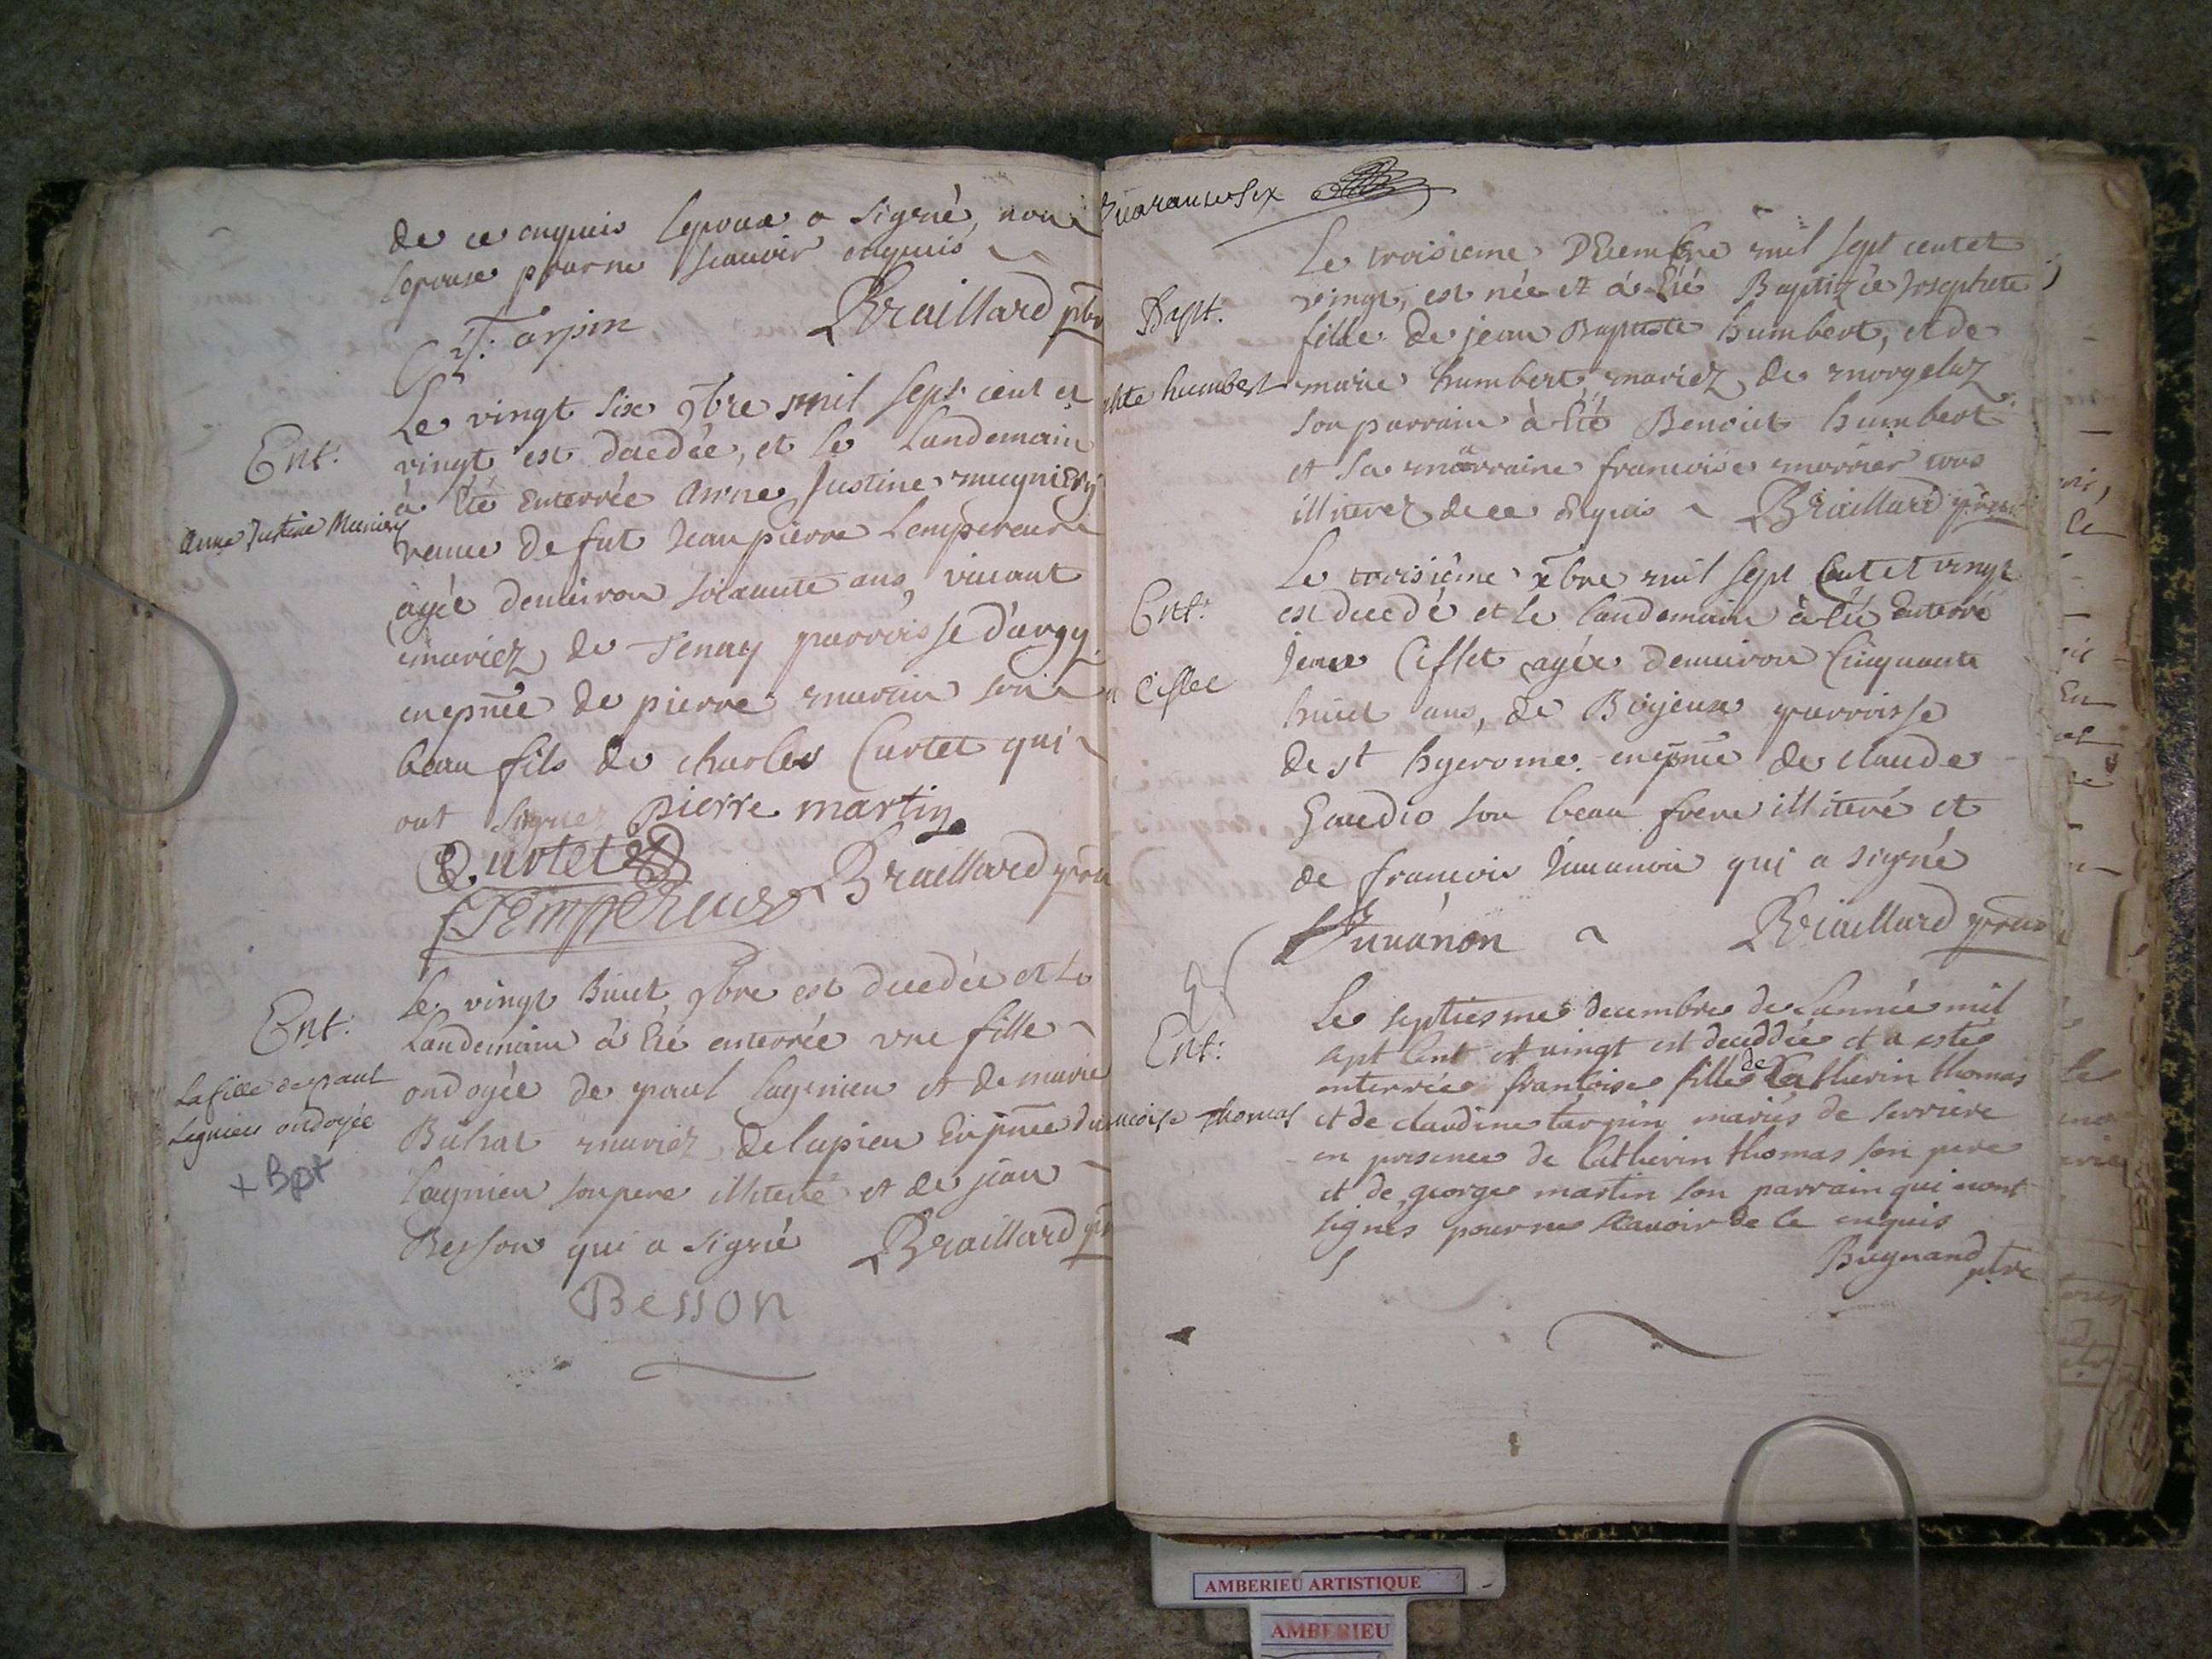 de ce enquis lepoux a signé, non
lepouse pour ne scauoir enquis
Tarpin
Braillard ptre
Ent:
Anne Justine Muniery
Le vingt six 9bre mil sept cent et
vingt est decedée, et le Landemain
à été Enterrée Anne Justine mugniery
veuue de fut Jean pierre Lempereur
agée denuiron soixante ans, viuant
mariez de Tenay parroisse d'argy
en epnce de pierre martin son
beau fils de charles Curtet qui
ont signez pierre martin
Curtet
Lempereur
Braillard
Ent:
La fille de paul
Lagnieu ondoyée
+ Bpt
Le vingt huict 9bre est decedée et le
Landemain à été enterrée une fille
ondoyée de paul lagnieu et de marie
mariez de lupieu En pnce du
lagnieu son pere illiteré et de jean
Besson qui a signé Braillard
Besson
Quarante Six
Bapt.
humbert
Le troisieme DEcembre mil sept cent et
vingt, est née et à été Baptizée Josephete
fille de jean Baptiste humbert, et de
marie humbert, mariez de morgelaz
son parrain à été Benoict humbert
et sa marraine francoise tous
illiterez de ce Enquis Braillard
Ent:
Ciflet
Le troisième xbre mil sept Cent et vingt
est decedé et le landemain à été Enterré
Ciflet agée denuiron Cinquante
huict ans, de parroisse
de st hyerome en epnce de claude
Gaudio son beau frere illiteré et
de francois Juuanon qui a signé
Juuanon
Braillard
Ent:
Thomas
Le septiesme decembre de Lannée mil
sept Cent et vingt est deceddée et a estée
enterrée francoise fille de Catherin thomas
et de claudine tarpin mariés de serriere
en presence de Catherin thomas son pere
et de george martin son parrain qui nont
signes pour ne scauoir de ce enquis
Bugnand
ptre
AMBERIEU ARTISTIQUE
AMBERIEU